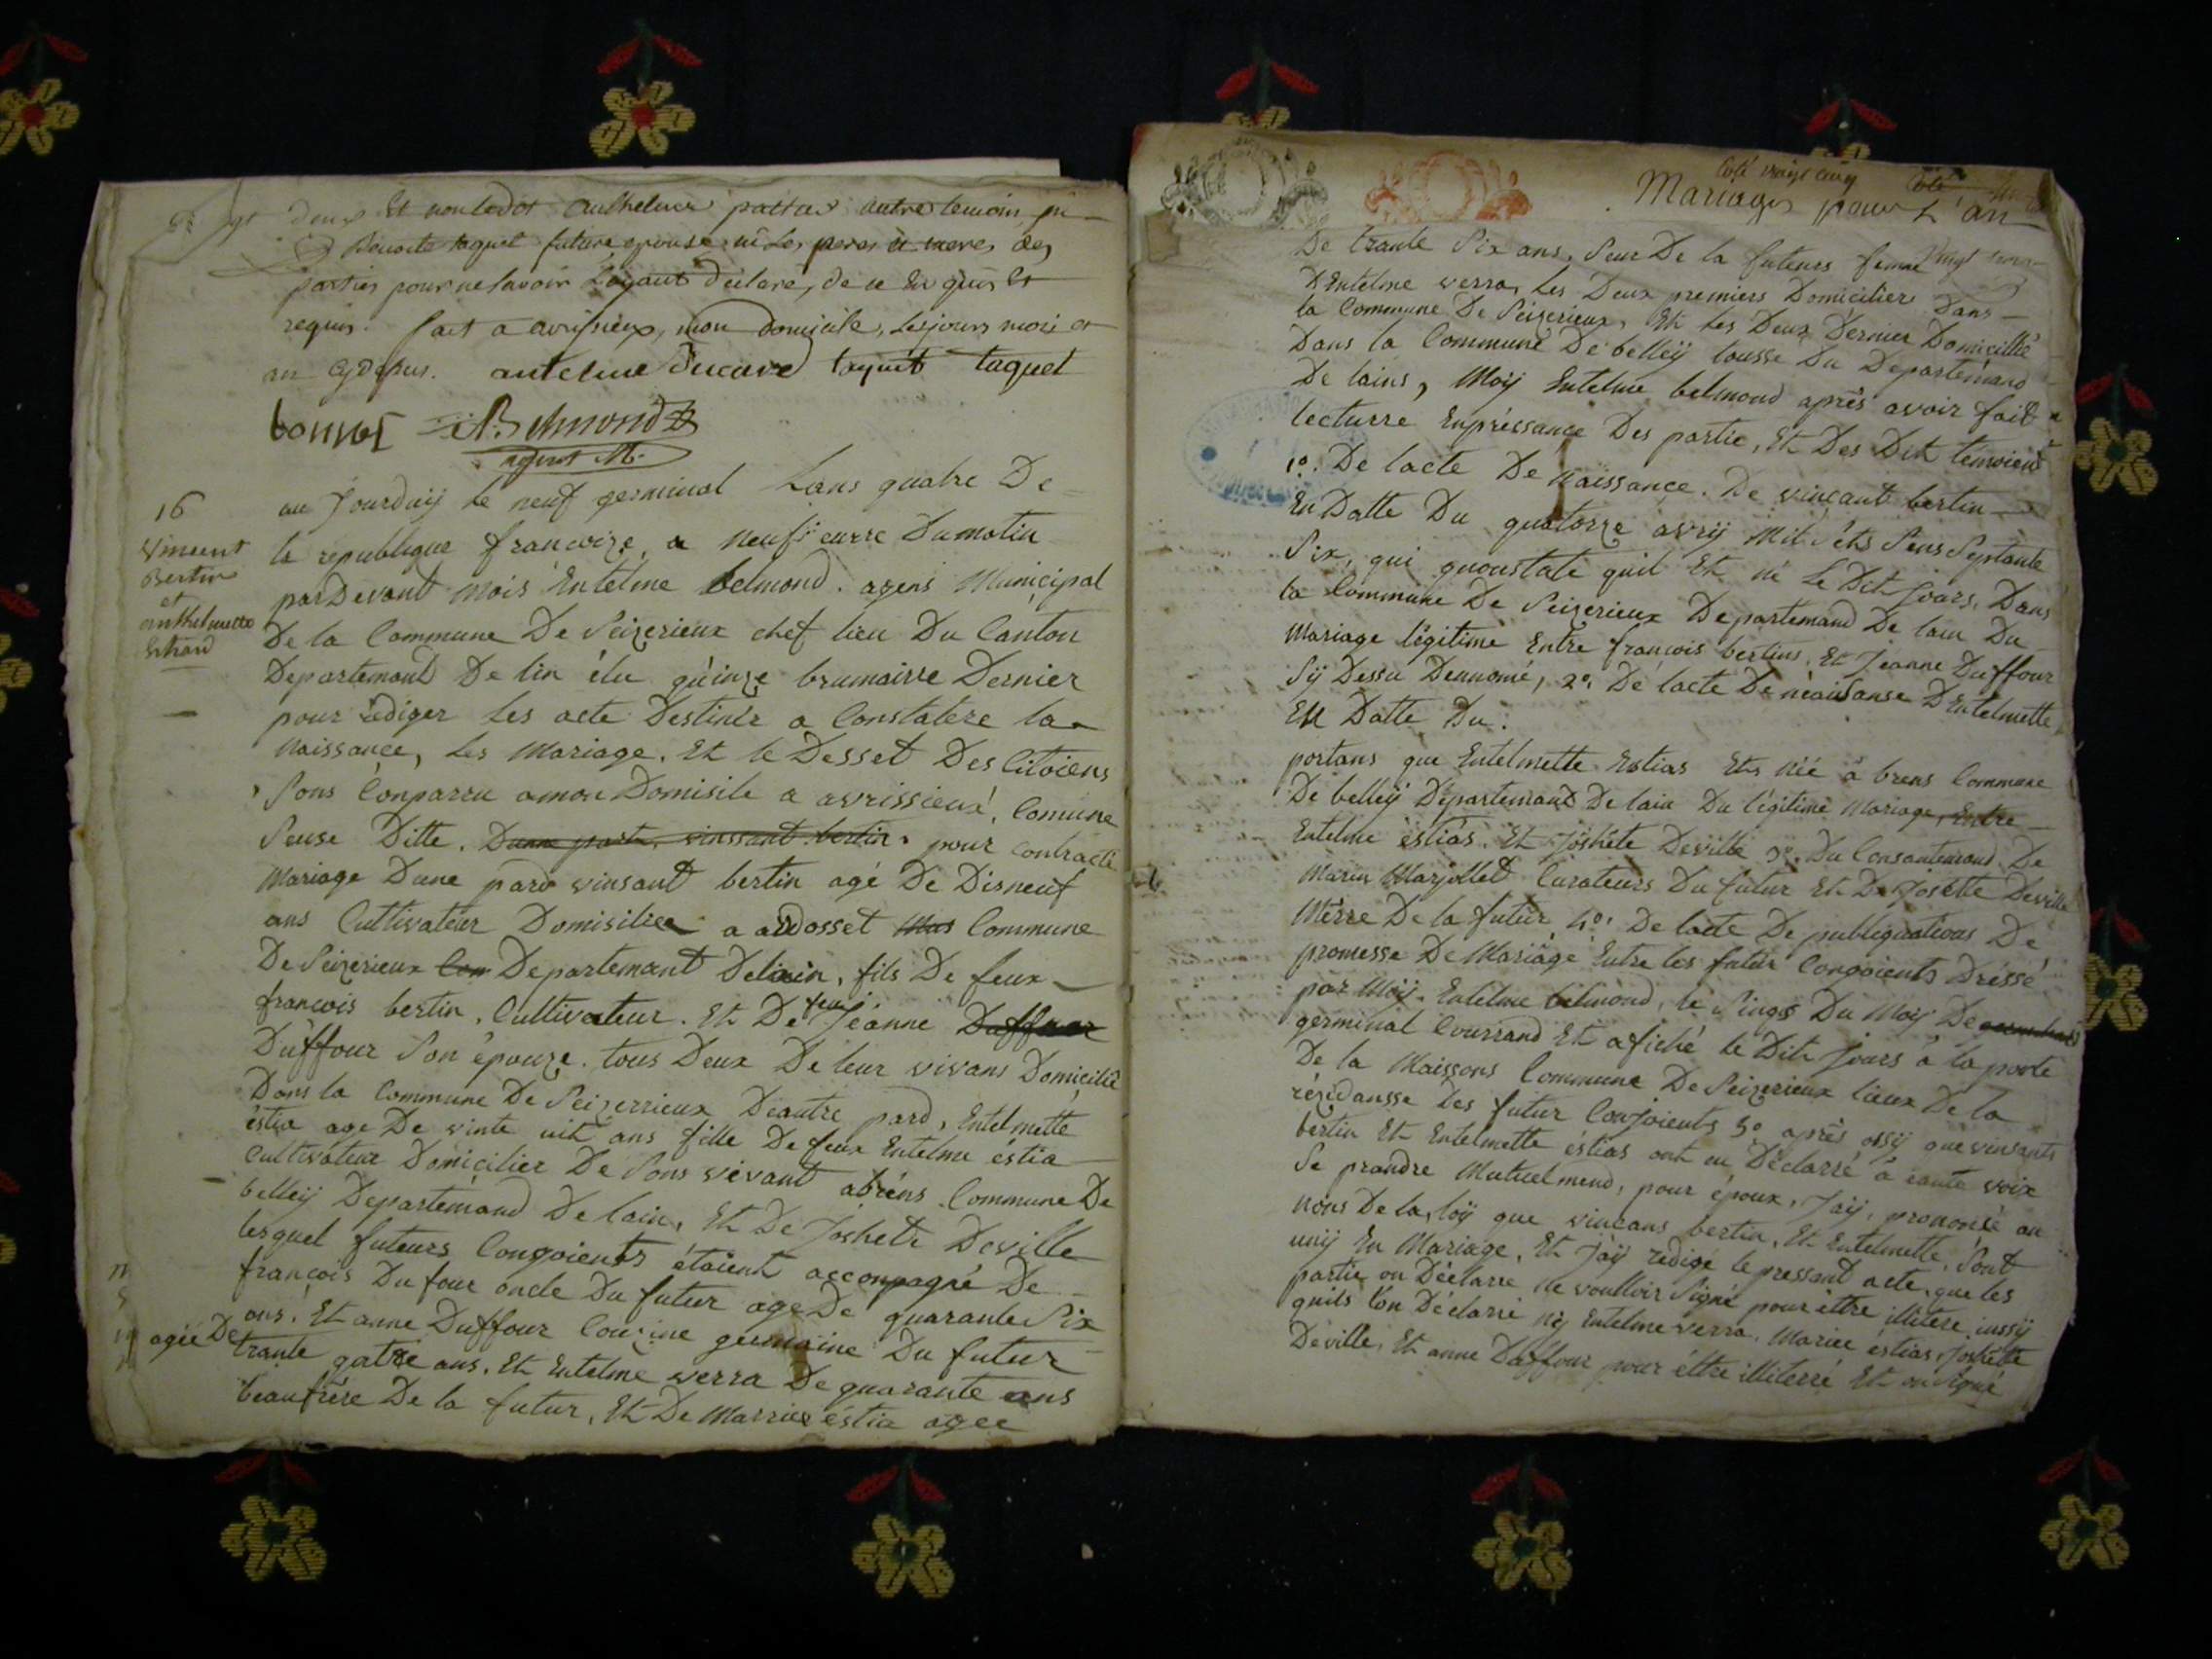 deux et non ledot anthelme pattas autre temoin ni
Benoite taquet future epouse ni les peres et meres des
parties pour ne savoir L'ayant declaré, de ce Enquis et
requis. fait a avrisieux, mon domicile, les jours mois et
an Cydessus. antelme ducave taquet taquet
bonnet A. Belmond
agent M.
16
Vincent
Bertin
et
anthelmette
Estiard
au Jourduij le neuf germinal Lans quatre De
la republique francoize, a neuf eurre Dumatin
parDevant mois Entelme belmond. agens Municipal
De la Commune De Peizerieux chef lieu Du Canton
Departemant De lin élu quinze brumairre Dernier
pour rediger les acte Destinér a Constatere la
Naissançe, les Mariage. Et le Desset Des Citoiens
Sons Conparru amon Domisile a avrissieux, Comune
Seuse Ditte. Dunne part. vinssant bertin. pour contracté
Mariage Dune pard vinsant bertin agé De Disneuf
ans Cultivateur Domisiliée a ardosset Commune
De Peizerieux Con Departemant Delain, fils De feux
françois bertin, Cultivateur. Et De feu Jéanne Duffour
Duffour Son épouze. tous Deux De leur vivans Domicilié
Dans la Commune De Peizerrieux Deautre pard, Entelmette
éstia age De vinte uit ans fille De feux Entelme éstia
Cultivateur Domicilier De Sons vévant abréns Commune De
belleÿ Departemand De lain, Et De Joshete Deville
lesquel futeurs Congoients étaient acconpagné De
françois Du four oncle Du futur age De quarante Six
ans. Et anne Duffour Couzine germaine Du futur
agée De trante gatre ans. Et Entelme verra De quarante ans
beaufrére De la futur, Et De Marrie éstia agee
Coté vingt cinq
Mariages pour L'an
De trante Six ans. Seur De la futeurs femme
DEntelme verra, les Deux premiers Domicilier Dans
la Commune De Peizerieux, Et les Deux Dérnier Domicillié
Dans la Commune De belleÿ tousse Du Departemand
De lains, Moÿ Entelme belmond aprés avoir fait
lecturre Enpréssançe Des partie, Et Des Dit témoient
1º. De lacte De Naissançe. De vinçant bertin
En Datte Du quatorze avrij Mil séts Sens Septante
Six, qui quonstate quil Et né le Dit Jours, Dans
la Commune De Peizerieux Departemand De lain Du
Mariage légitime Entre françois bertins, Et Jeanne Duffour
Sÿ Dessu Dennomé, 2º. De lacte De néaisanse DEntelmette
EN Datte Du.
portans que Entelmette Estias Ets Néé à brens Commune
De belleÿ Départemant De lain Du légitime Mariage, Entre
Entelme éstias. Et Joshéte Deville 3º. Du Consantemand De
Marin Marjollet Curateurs Du futur Et De Joshette Deville
Mérre De la futur, 4º. De lacte De publiquations De
promesse De Mariage Entre les futur Congoients Dréssé
par Moÿ. Entelme belmond, lé Sings Du Moÿ De
germinal Courrand Et afiché le Dit Jours à la porte
De la Maissons Commune De Peizerieux lieux De la
rézidansse Des futur Conjoients 5º aprés ossÿ que vinsants
bertin Et Entelmette éstias ont eu Déclarré à eaute voix
Se prandre Mutuelmend, pour époux, Jaÿ, prononsé au
nons De la loÿ que vincans bertin, Et Entelmette, Sont
unij En Mariage, Et Jaÿ redigé le pressant acte, que les
partie on Déclarré ne voulloir Signé pour éttre illitere, inssÿ
quils lon Déclarré nÿ Entelme verra. Mariee éstias, Joshétte
Déville, Et anne Duffour pour éttre illiterré Et on Signé